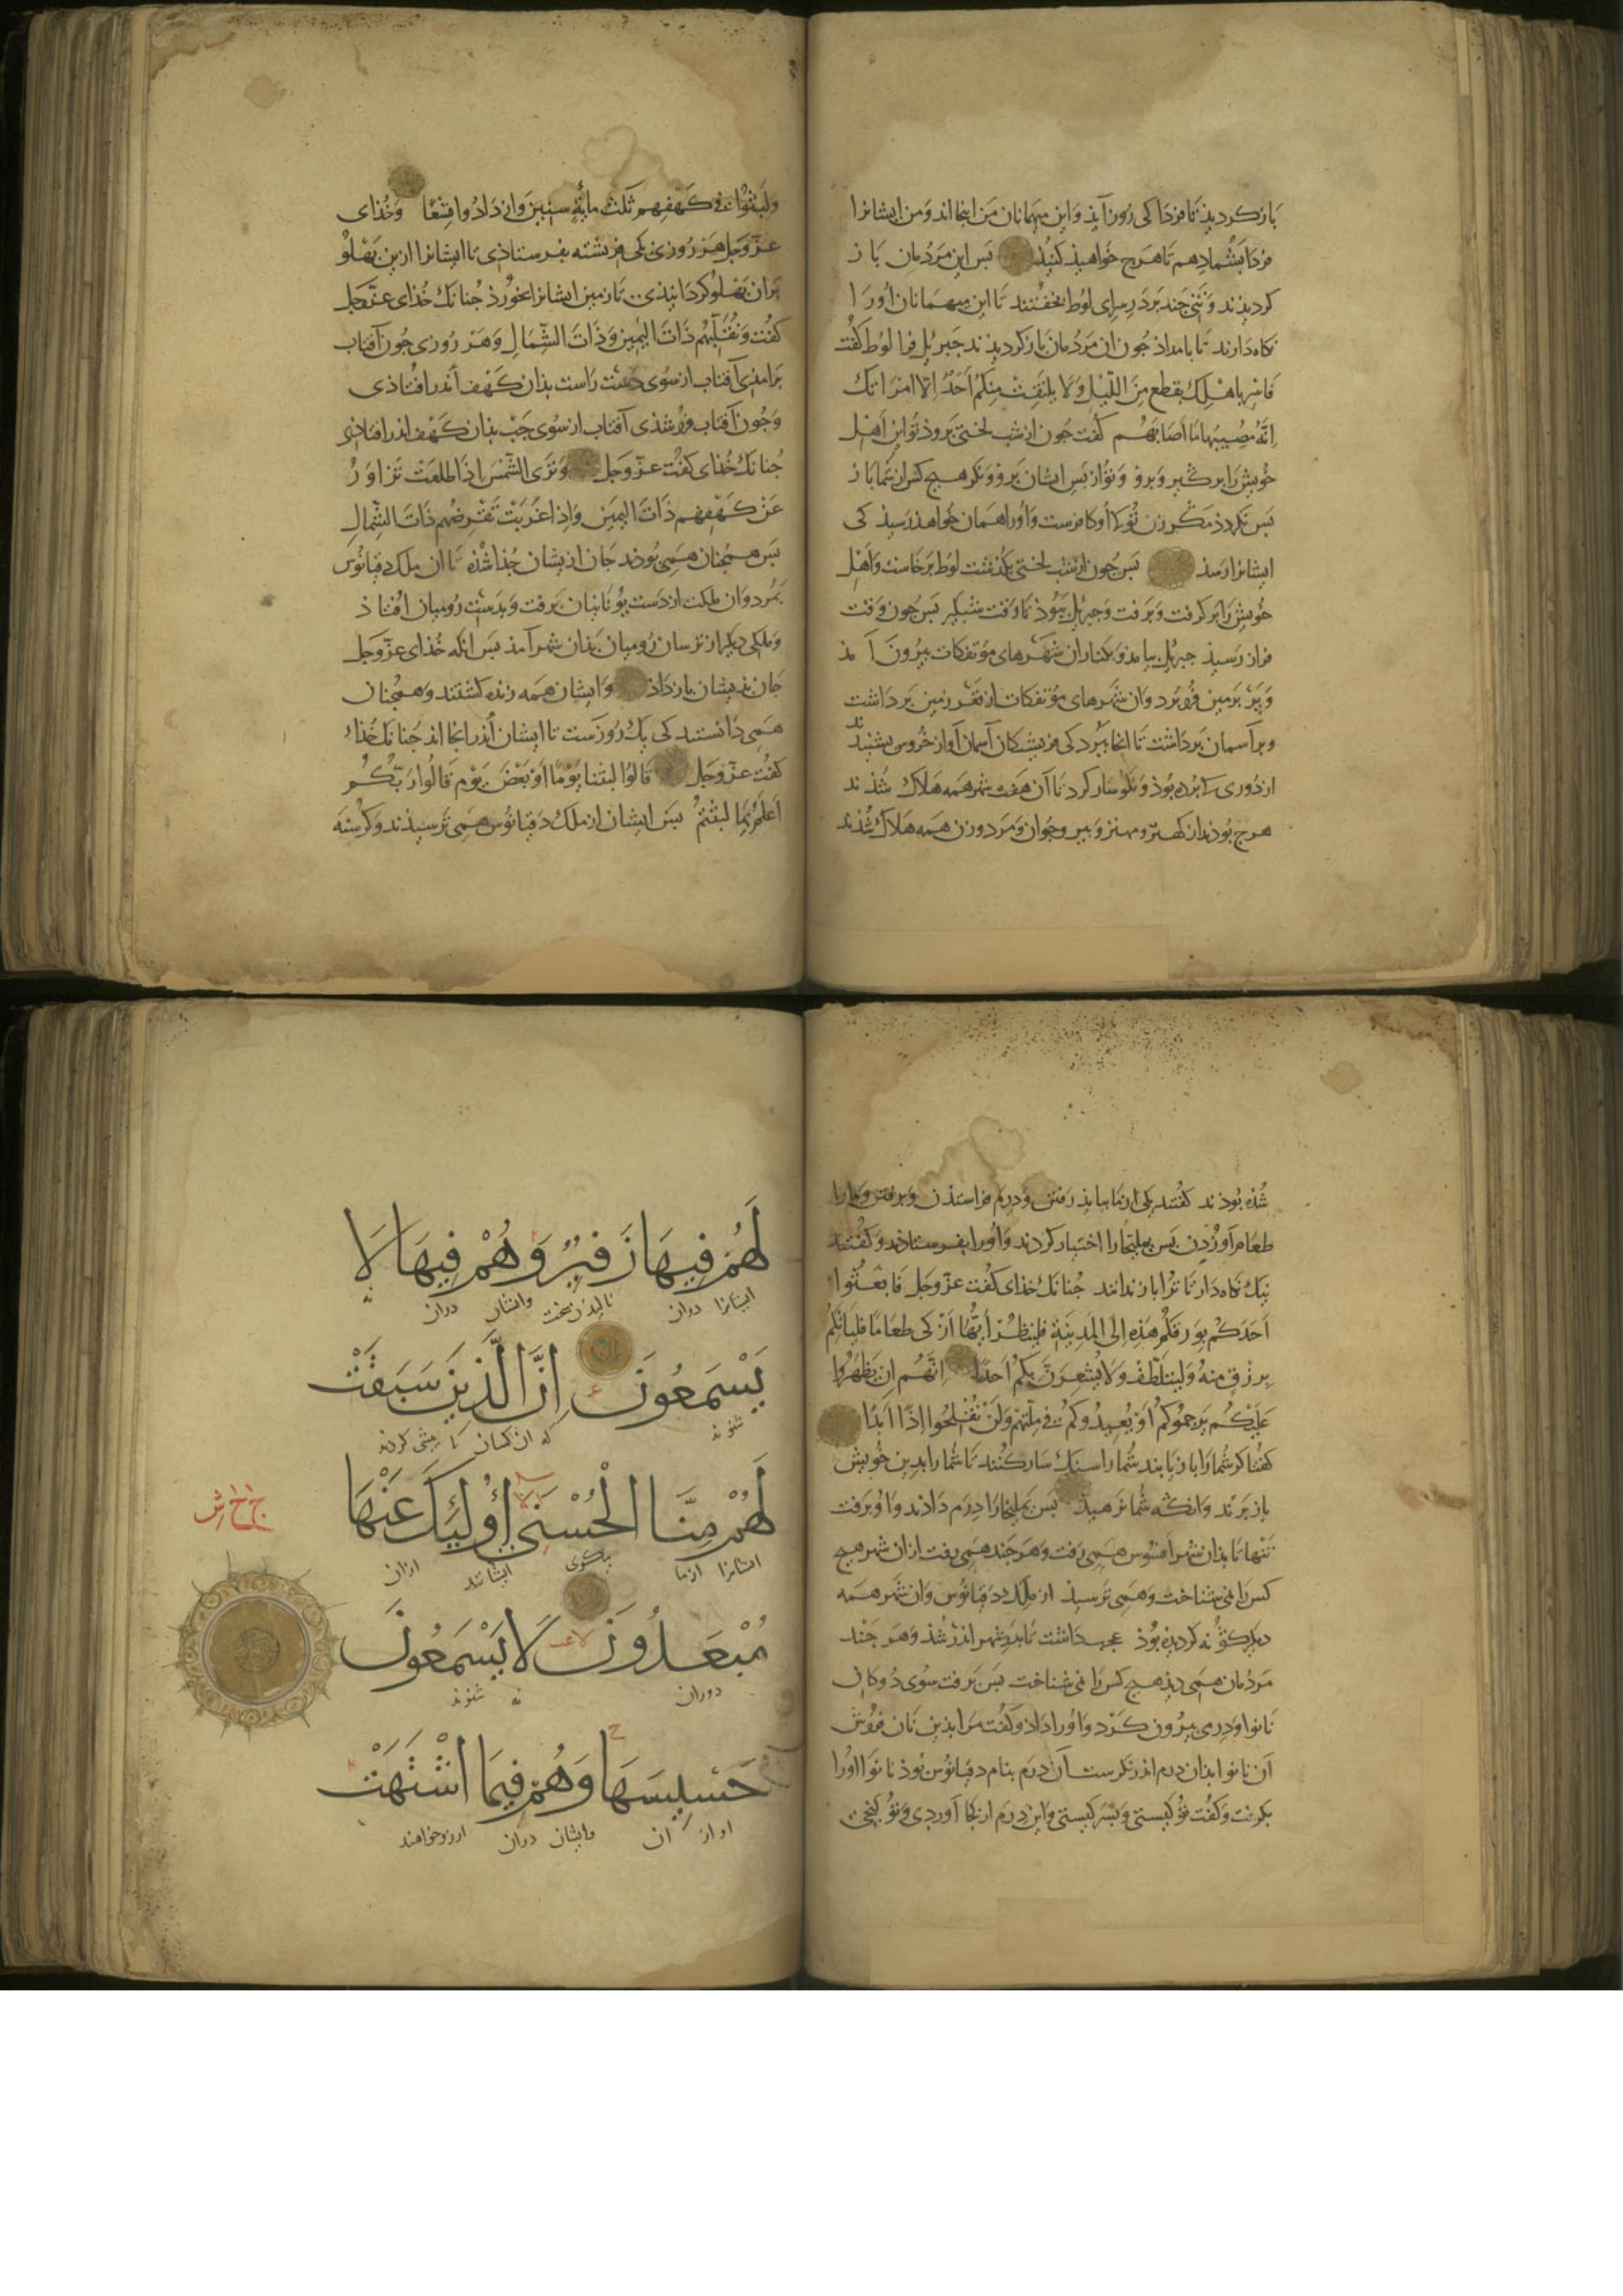 بازکردیذ تا فردا کی روز آیذ و این مهمانان من اینجااند و من ایشانرا
فردا بشما دهم تا هرچ خواهیذ کنیذ بس این مردمان باز
کردیدند و تنی چند بر در سرای لوط بخفتند تا این میهمانان او را
نکاه دارند تا بامداذ جون ان مردمان باز کردیدند جبرئیل فرا لوط کفت
فاسر باهلك بقطع من اللیل ولا یلتفت منکم احد الا امراتك
انه مصیبها ما اصابهم کفت جون از شب لختی بروذ تو این اهل
خویش را برکیر و برو و تو از بس ایشان برو و نکر هیچ کس از شما باز
بس نکرد ذ مکر زن تو کا او کافرست و او را همان خواهذ رسیذ کی
ایشانرا رسذ بس جون از شب لختی بکذشت لوط برخاست و اهل
خویش را برکرفت و برفت و جبرئیل ببوذ تا وقت شبکیر بس جون وقت
فراز رسیذ جبرئیل بیامذ و بکناران شهرهای مؤتفکات بیرون آمذ
و بر بزمین فرو برد و ان شهرهای مؤتفکات از قعر زمین برداشت
و بر آسمان برداشت تا انجا ببرد کی فریشتکان آسمان آواز خروس بشنیذند
از دوری کا برده بوذ و نکوسار کرد تا آن هفت شهر همه هلاك شذند
هرچ بوذند از کهتر و مهتر و بیر و جوان و مرد و زن همه هلاك شذند
ولبثوا فی کهفهم ثلث مایة سنین وازدادوا تسعا و خذای
عز و جل هر روزی یکی فریشته بفرستاذی تا ایشانرا ازین بهلو
بران بهلو کردانیذی تا زمین ایشانرا نخورذ جنانك خذای عز و جل
کفت ونقلبهم ذات الیمین وذات الشمال و هر روزی جون آفتاب
برامذی آفتاب از سوی دست راست بذان کهف اندر افتاذی
و جون آفتاب فرو شذی آفتاب از سوی جب بذان کهف اندر افتاذی
جنانك خذای کفت عز و جل وتری الشمس اذا طلعت تزاور
عن کهفهم ذات الیمین واذا غربت تقرضهم ذات الشمال
بس همجنان همی بوذند جان از یشان جذا شذه تا ان ملك دقیانوس
بمرد و ان ملکت از دست یونانیان برفت و بدست رومیان افتاذ
و ملکی دیکر از ترسان رومیان بذان شهر آمذ بس انکه خذای عز و جل
جان بذیشان باز داذ و ایشان همه زنده کشتند و همجنان
همی دانستند کی یك روزست تا ایشان اندر انجااند جنانك خذای
کفت عز و جل قالوا لبثنا یوما او بعض یوم قالوا ربکم
اعلم بما لبثتم بس ایشان از ملك دقیانوس همی ترسیذند و کرسنه
شذه بوذند کفتند یکی از ما بباید رفتن و درم فراستذن و برفتن و ما را
طعام آوردن بس یملیخا را اختیار کردند و او را بفرستاذند و کفتند
نیك نکاه دار تا ترا باز ندانند جنانك خذای کفت عز و جل فابعثوا
احدکم بورقکم هذه الی المدینة فلینظر ایها ازکی طعاما فلیاتکم
برزق منه ولیتلطف ولا یشعرن بکم احدا انهم ان یظهروا
علیکم یرجموکم او یعیدوکم فی ملتهم ولن تفلحوا اذا ابدا
کفتا کر شما را بازیابند شما را سنك سار کنند تا شما را بدین خویش
باز برند وانکه شما نرهیذ بس یملیخا را درم داذند و او برفت
تنها تا بذان شهر افسوس همی رفت و هر جند همی رفت ازان شهر هیچ
کس را می شناخت و همی ترسیذ از ملك دقیانوس و ان شهر همه
دیکر کونه کردیده بوذ عجب داشت تا بدر شهر اندر شذ و هر جند
مردمان همی دیذ هیچ کس را نمی شناخت بس برفت سوی دوکان
نانوا و درمی بیرون کرد و او را داذ و کفت مرا بذین نان فروش
آن نانوا بذان درم اندر نکرست آن درم بنام دقیانوس بوذ نانوا او را
بکرفت و کفت تو کیستی و بسر کیستی و این درم از کجا آوردی و تو کنجی
لَهُمْ فِيهَا زَفِيرٌ وَهُمْ فِيهَا لَا
ایشانرا دران نالیدن سخت وایشان دران نه
يَسْمَعُونَ إِنَّ الَّذِينَ سَبَقَتْ
شنوند که ان کسان کا بیشی کردند
لَهُمْ مِنَّا الْحُسْنَى أُولَئِكَ عَنْهَا
ایشانرا ازما نیکوی ایشانند ازان
مُبْعَدُونَ لَا يَسْمَعُونَ
دوران نه شنوند
حَسِيسَهَا وَهُمْ فِيمَا اشْتَهَتْ
اواز ان وایشان دران ارزو خواهند